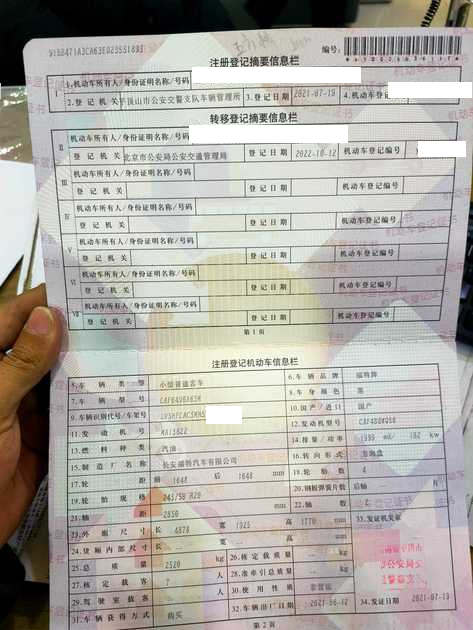 编号:
注册登记摘要信息栏
I 1.机动车所有人/身份证明名称/号码
2.登记机关 平顶山市公安交警支队车辆管理所 3.登记日期 2021-07-19 4.机动车登记编号
转移登记摘要信息栏
II 机动车所有人/身份证明名称/号码
登记机关 北京市公安局公安交通管理局 登记日期 2022-10-12 机动车登记编号
III 机动车所有人/身份证明名称/号码
登记机关 登记日期 机动车登记编号
IV 机动车所有人/身份证明名称/号码
登记机关 登记日期 机动车登记编号
V 机动车所有人/身份证明名称/号码
登记机关 登记日期 机动车登记编号
VI 机动车所有人/身份证明名称/号码
登记机关 登记日期 机动车登记编号
VII 机动车所有人/身份证明名称/号码
登记机关 登记日期 机动车登记编号
第1页
注册登记机动车信息栏
5.车辆类型 小型普通客车 6.车辆品牌 福特牌
7.车辆型号 CAF6490A63M 8.车身颜色 黑
9.车辆识别代号/车架号 10.国产/进口 国产
11.发动机号 12.发动机型号
13.燃料种类 汽油 14.排量/功率 1999 ml/ 182 kw
15.制造厂名称 长安福特汽车有限公司 16.转向形式 方向盘
17.轮距 前 1648 后 1648 mm 18.轮胎数 4
19.轮胎规格 245/50 R20 20.钢板弹簧片数 后轴 -- 片
21.轴距 2850 mm 22.轴数 2
23.外廓尺寸 长 4878 宽 1925 高 1770 mm 33.发证机关章
24.货厢内部尺寸 长 -- 宽 -- 高 -- mm
25.总质量 2520 kg 26.核定载质量 -- kg
27.核定载客 7 人 28.准牵引总质量 -- kg
29.驾驶室载客 -- 人 30.使用性质 非营运
31.车辆获得方式 购买 32.车辆出厂日期 2021-06-12 34.发证日期 2021-07-19
第2页